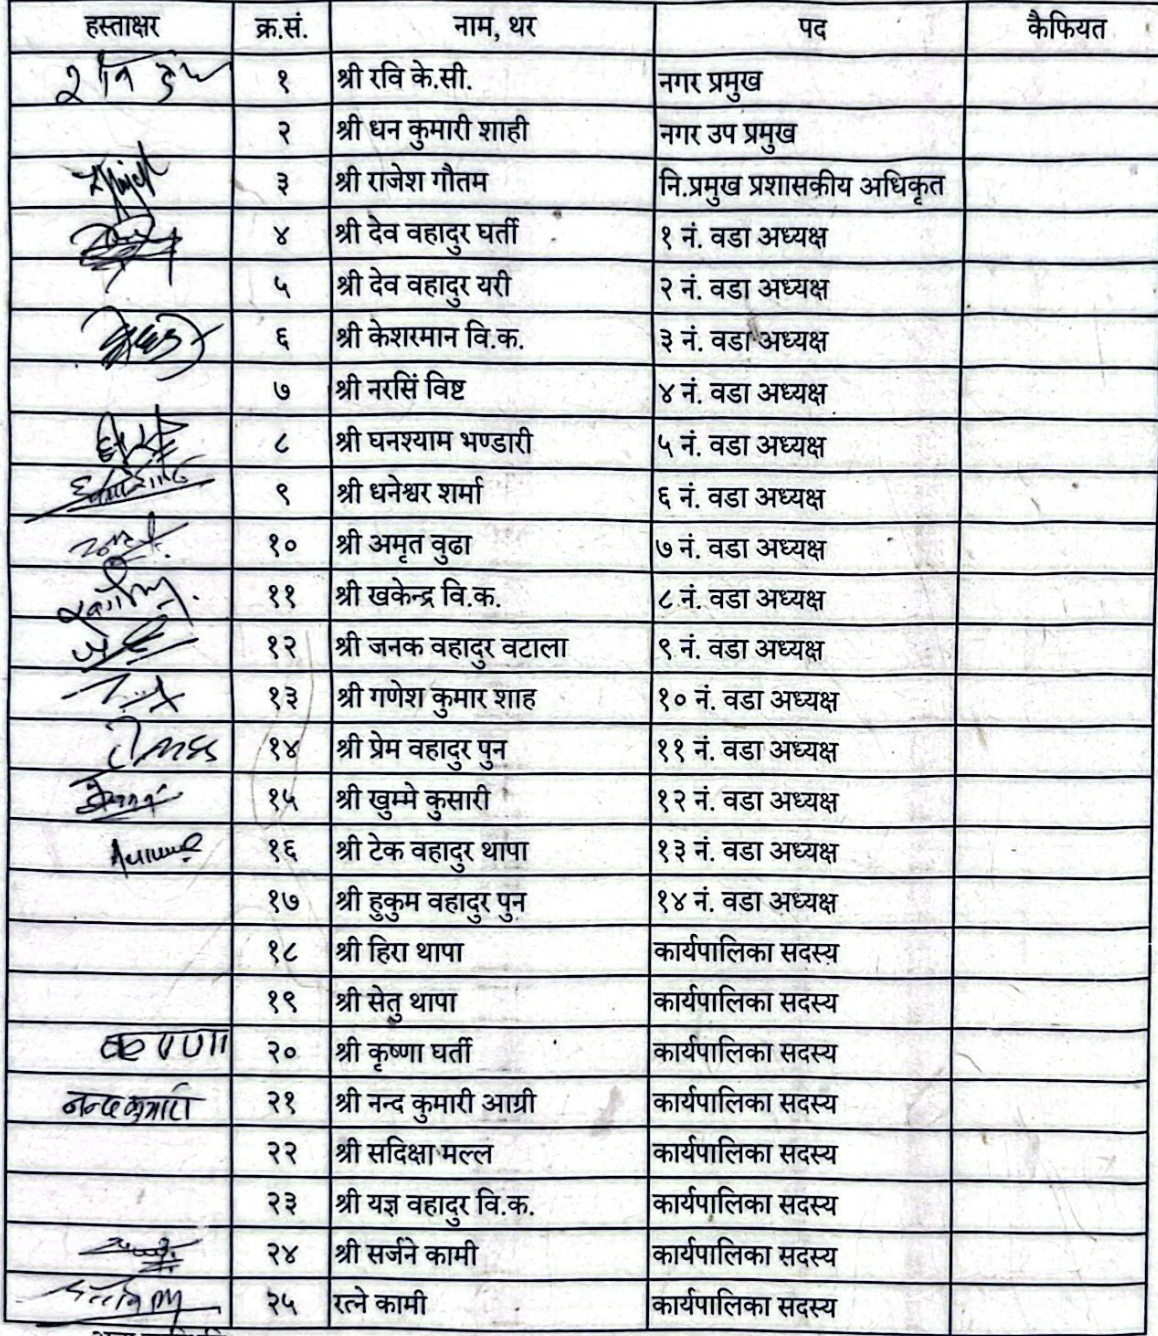 हस्ताक्षर क्र.सं. नाम, थर पद कैफियत
१ श्री रवि के.सी. नगर प्रमुख
२ श्री धन कुमारी शाही नगर उप प्रमुख
३ श्री राजेश गौतम नि.प्रमुख प्रशासकीय अधिकृत
४ श्री देव वहादुर घर्ती १ नं. वडा अध्यक्ष
५ श्री देव वहादुर यरी २ नं. वडा अध्यक्ष
६ श्री केशरमान वि.क. ३ नं. वडा अध्यक्ष
७ श्री नरसिं विष्ट ४ नं. वडा अध्यक्ष
८ श्री घनश्याम भण्डारी ५ नं. वडा अध्यक्ष
९ श्री धनेश्वर शर्मा ६ नं. वडा अध्यक्ष
१० श्री अमृत वुढा ७ नं. वडा अध्यक्ष
११ श्री खकेन्द्र वि.क. ८ नं. वडा अध्यक्ष
१२ श्री जनक वहादुर वटाला ९ नं. वडा अध्यक्ष
१३ श्री गणेश कुमार शाह १० नं. वडा अध्यक्ष
१४ श्री प्रेम वहादुर पुन ११ नं. वडा अध्यक्ष
१५ श्री खुम्मे कुसारी १२ नं. वडा अध्यक्ष
१६ श्री टेक वहादुर थापा १३ नं. वडा अध्यक्ष
१७ श्री हुकुम वहादुर पुन १४ नं. वडा अध्यक्ष
१८ श्री हिरा थापा कार्यपालिका सदस्य
१९ श्री सेतु थापा कार्यपालिका सदस्य
२० श्री कृष्णा घर्ती कार्यपालिका सदस्य
नन्दकुमारी २१ श्री नन्द कुमारी आग्री कार्यपालिका सदस्य
२२ श्री सदिक्षा मल्ल कार्यपालिका सदस्य
२३ श्री यज्ञ वहादुर वि.क. कार्यपालिका सदस्य
२४ श्री सर्जने कामी कार्यपालिका सदस्य
२५ रत्ने कामी कार्यपालिका सदस्य